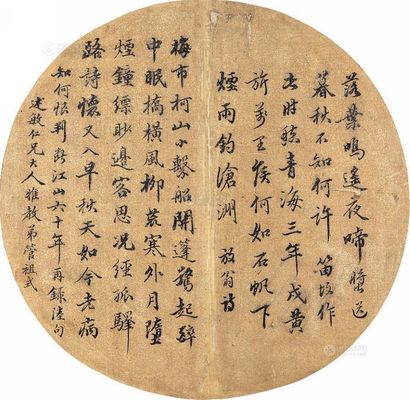 落葉鳴遙夜啼螿送
暮秋不知何許笛故作
此時愁青海三年戍黃
旂萬里侯何如石帆下
煙雨釣滄洲 放翁詩
梅市柯山小繫船開篷驚起醉
中眠橋橫風柳荒寒外月墮
煙鐘縹緲邊客思況經孤驛
路詩懷又入早秋天如今老病
知何恨判斷江山六十年 再錄陸句
敏仁兄大人雅教弟管祖式